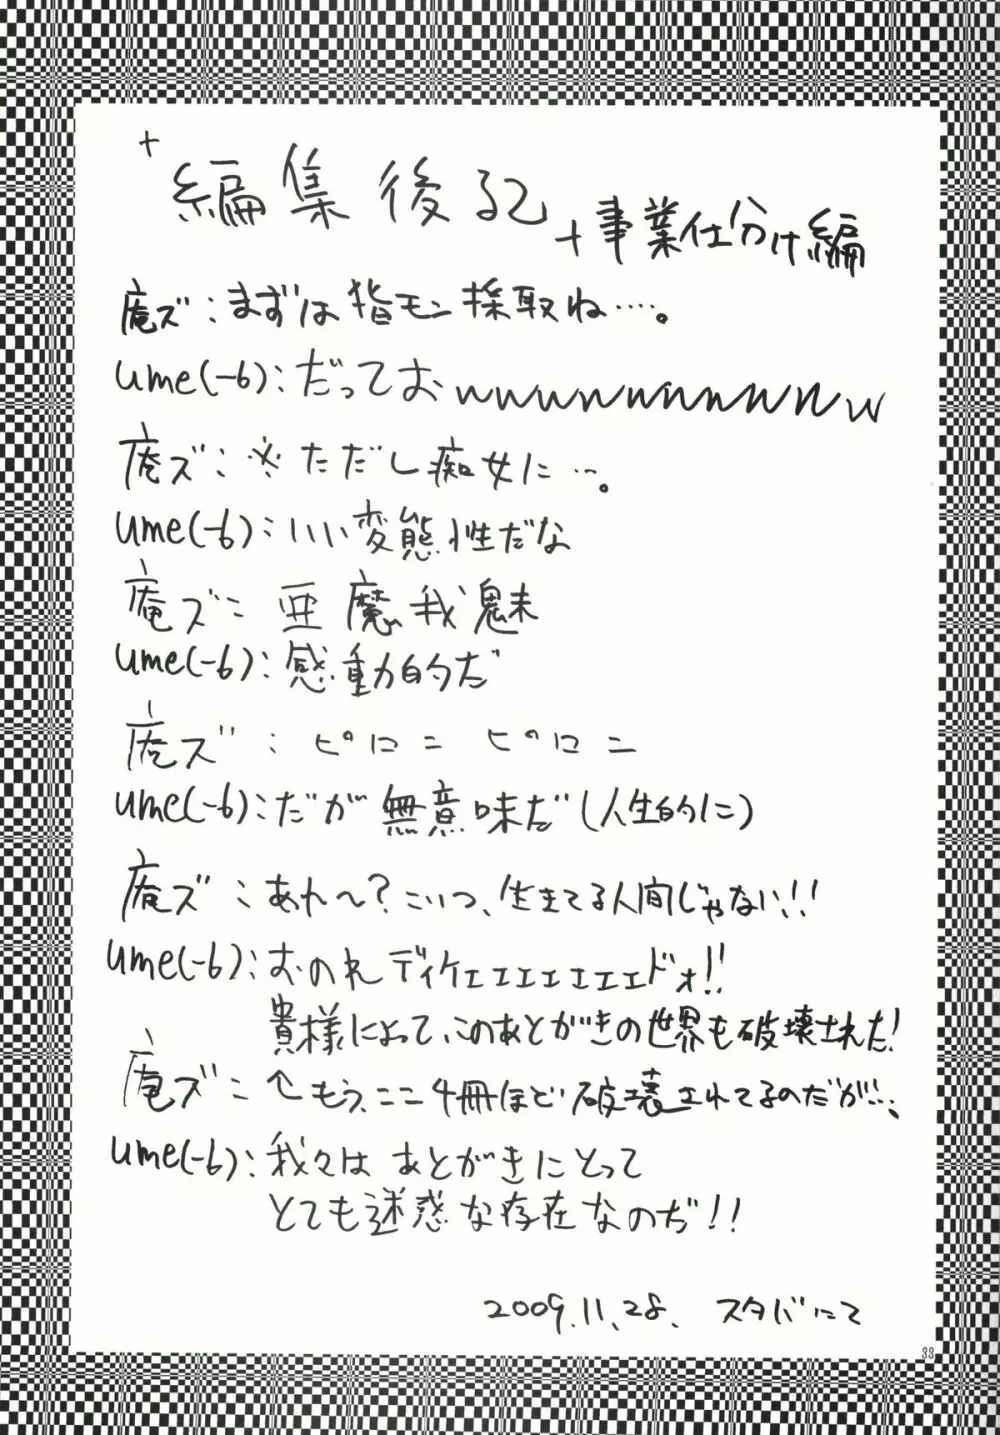 +編集後記
+事業仕分け編
庵ズ:まずは指モン採取ね….。
ume(-6):だっておwwwwwwwwwww
庵ズ:※ただし痴女に…。
ume(-6):いい変態性だな
庵ズ:亜魔我魅
ume(-6):感動的だ
庵ズ:ピロニ ピロニ
ume(-6):だが無意味だ(人生的に)
庵ズ:あれ〜?こいつ、生きてる人間じゃない!!
ume(-6):おのれディケェェェェェェドォ!!
貴様によって、このあとがきの世界も破壊された!
庵ズ:↑もう、ここ4冊ほど破壊されてるのだが…、
ume(-6):我々はあとがきにとって
とても迷惑な存在なのぢ!!
2009.11.28. スタバにて
33